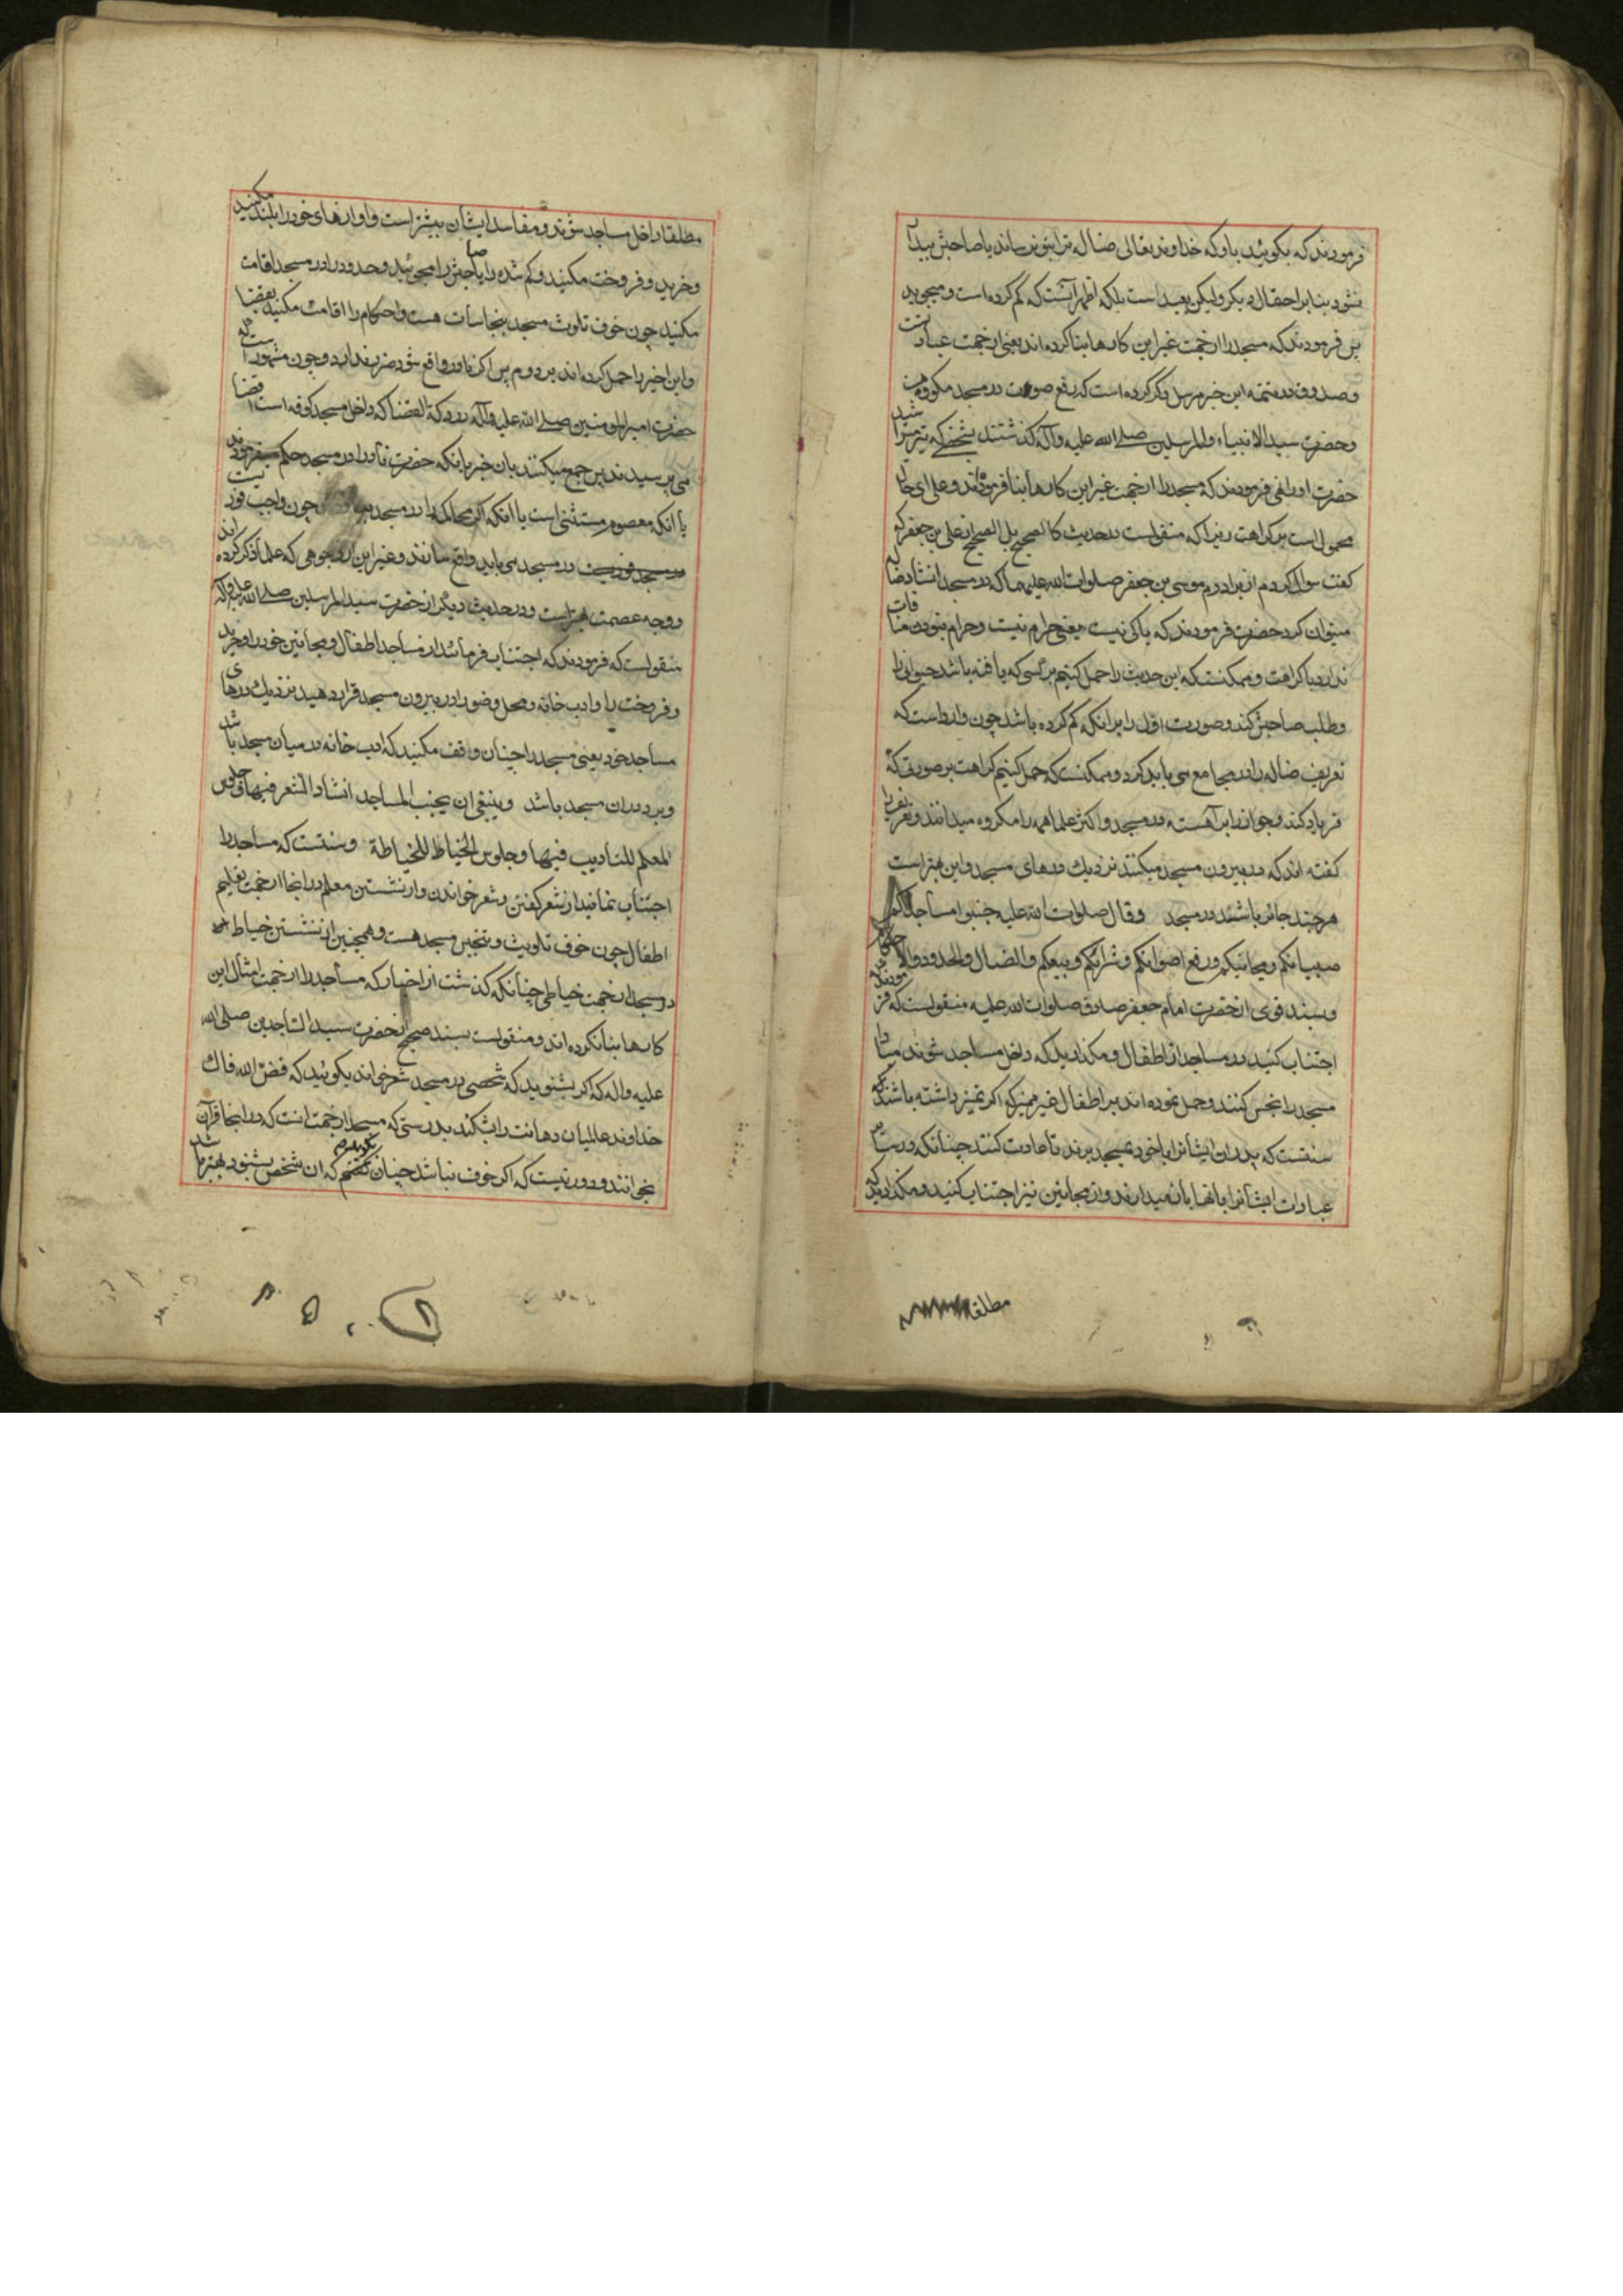 فرمودند که بگوئید باو که خداوند تعالی ضاله ترا بتو نرساند یا صاحبش پیدا
نشود بنا بر احتمال دیگر و لیکن بعید است بلکه اظهر آنست که گم کرده است و میجوید
پس فرمودند که مسجد را از جهت غیر این کارها بنا کرده اند یعنی از جهت عبادت
و صدوق در تتمه این خبر مرسل ذکر کرده است که رفع صوت در مسجد مکروهست
و حضرت سید الانبیاء والمرسلین صلی الله علیه وآله گذشتند بشخصی که تیر میتراشید
حضرت او را نهی فرمودند که مسجد را از جهت غیر این کارها بنا فرموده‌اند و علی ای حال
محمول است بر کراهت زیرا که منقولست در حدیث کالصحیح بل الصحیح از علی بن جعفر که
گفت سوال کردم از برادرم موسی بن جعفر صلوات الله علیهما که در مسجد انشاد ضاله
میتوان کرد حضرت فرمودند که باکی نیست یعنی حرام نیست و حرام نبودن منافات
ندارد با کراهت و ممکنست که این حدیث را حمل کنیم بر کسی که یافته باشد حیوانی را
و طلب صاحبش کند و صورت اول را بر آنکه گم کرده باشد چون وارد است که
تعریف ضاله را در مجامع می باید کرد و ممکنست که حمل کنیم کراهت بر صورتی که
فریاد کند و جواز را بر آهسته در مسجد و اکثر علما همه را مکروه میدانند و تعریف را
گفته اند که در بیرون مسجد میکنند نزدیک درهای مسجد و این بهتر است
هر چند جائز باشد در مسجد وقال صلوات الله علیه جنبوا مساجدکم
صبیانکم ومجانینکم ورفع اصواتکم وشرائکم وبیعکم والضال والحدود والاحکام
و بسند قوی از حضرت امام جعفر صادق صلوات الله علیه منقولست که فرمودند که
اجتناب کنید در مساجد از اطفال و مگذارید که داخل مساجد شوند مبادا
مسجد را نجس کنند و حمل نموده اند بر اطفال غیر ممیز که اگر تمیز داشته باشند
سنتست که پدران ایشانرا با خود بمسجد برند تا عادت کنند چنانکه در سایر
عبادات ایشانرا بانها باز میدارند و از مجانین نیز اجتناب کنید و مگذارید که
مطلقا
مطلقا داخل مساجد شوند و مفاسد ایشان بیشتر است و آوازهای خود را بلند مکنید
و خرید و فروخت مکنید و گم شده را یا صاحبش را مجوئید و حدود را در مسجد اقامت
مکنید چون خوف تلوث مسجد بنجاسات هست و احکام را اقامت مکنید بعضا
و این اخیر را حمل کرده اند بر دوم پس اگر نادر واقع شود ضرر ندارد و چون مشهور است که
حضرت امیر المومنین صلی الله علیه وآله در دکة القضا که داخل مسجد کوفه است قضا
می پرسیدند پس جمع میکنند بان خبر بانکه حضرت نادرا در مسجد حکم میفرمودند
یا آنکه معصوم مستثنی است یا آنکه اگر محاکمه را در مسجد چون واجب فوریست
در مسجد می باید واقع سازند و غیر این از وجوهی که علما ذکر کرده اند
و وجه عصمت بهتر است و در حدیث دیگر از حضرت سید المرسلین صلی الله علیه وآله
منقولست که فرمودند که اجتناب فرمائید از مساجد اطفال و مجانین خود را و خرید
و فروخت را و ادب خانه و محل وضو را در بیرون مسجد قرار دهید نزدیک درهای
مساجد خود یعنی مسجد را چنان وقف مکنید که ادب خانه در میان مسجد باشد
و بر در آن مسجد باشد وینبغی ان یجنب المساجد انشاد الشعر فیها وجلوس
المعلم للتادیب فیها وجلوس الخیاط للخیاطة و سنتست که مساجد را
اجتناب نمایند از شعر گفتن و شعر خواندن و از نشستن معلم در آنجا از جهت تعلیم
اطفال چون خوف تلویث و تنجیس مسجد هست و همچنین از نشستن خیاط
در مسجد از جهت خیاطی چنانکه گذشت از اخبار که مساجد را از جهت امثال این
کارها بنا نکرده اند و منقولست بسند صحیح از حضرت سید الساجدین صلی الله
علیه واله که اگر بشنوید که شخصی در مسجد شعر خواند بگوئید که فض الله فاک
خداوند عالمیان دهانت را بشکند بدرستی که مسجد از جهت انست که در آنجا قرآن
بخوانند و دور نیست که اگر خوف نباشد چنان بگویم که ان شخص بشنود بهتر باشد